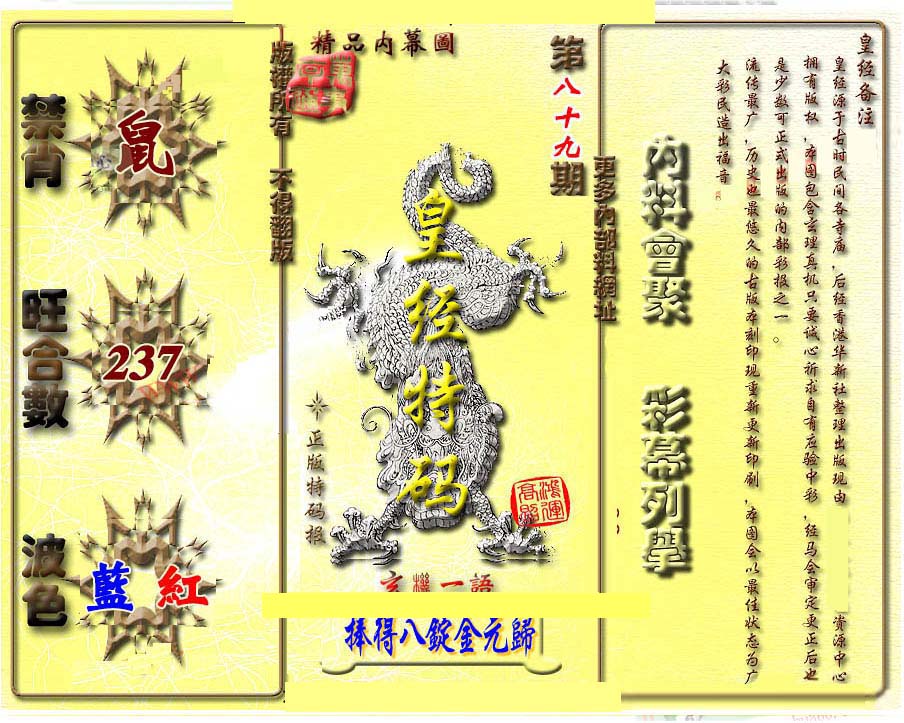 精品內幕圖
第八十九期
版權所有 不得翻版
更多內部料網址
皇经特码
正版特码报
鴻運高照
玄機一語
捧得八錠金元歸
禁肖
鼠
旺合數
237
波色
藍 紅
內料會聚
彩幕列舉
皇经备注
皇经源于古时民间各寺庙，后经香港华新社整理出版现由
资源中心
拥有版权，本图包含玄理真机只要诚心祈求自有应验中彩，经马会审定更正后也
是少数可正式出版的内部彩报之一。
流传最广，历史也最悠久的古版本刻印现重新更新印刷，本图会以最佳状态为广
大彩民造出福音